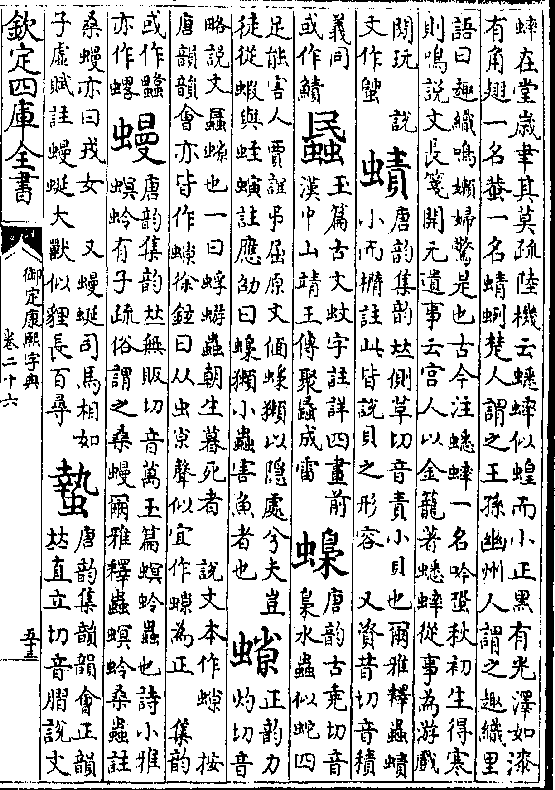 蟀在堂歲聿其莫疏陸機云蟋蟀似蝗而小正黑有光澤如漆
有角翅一名蛬一名蜻蛚楚人謂之王孫幽州人謂之趣織里
語曰趣織鳴嬾婦驚是也古今注蟋蟀一名吟蛩秋初生得寒
則鳴說文長箋開元遺事云宮人以金籠著蟋蟀從事為游戲
閑玩　說
文作
𧐐
唐韵集韵𠀤側革切音責小貝也爾雅釋蟲蟦
小而橢註此皆說貝之形容　又資昔切音積
義同
或作鰿
蟁
玉篇古文蚊字註詳四畫前
漢中山靖王傳聚蟁成雷
蟂
唐韵古堯切音
梟水蟲似蛇四
足能害人賈誼弔屈原文偭蟂獺以隱處兮夫豈
徒從蝦與蛭螾註應劭曰蟂獺小蟲害魚者也
正韵力
灼切音
略說文也一曰蜉蝣蟲朝生暮死者　說文本作　按
唐韵韵會亦皆作徐鉉曰从虫聲似宜作為正　集韵
或作
亦作
蟃
唐韵集韵𠀤無販切音萬玉篇螟蛉蟲也詩小雅
螟蛉有子疏俗謂之桑蟃爾雅釋蟲螟蛉桑蟲註
桑蟃亦曰戎女　又蟃蜒司馬相如
子虛賦註蟃蜒大獸似貍長百尋
蟄
唐韵集韻韻會正韻
𠀤直立切音䐑說文
欽定四庫全書
御定康熙字典
卷二十六